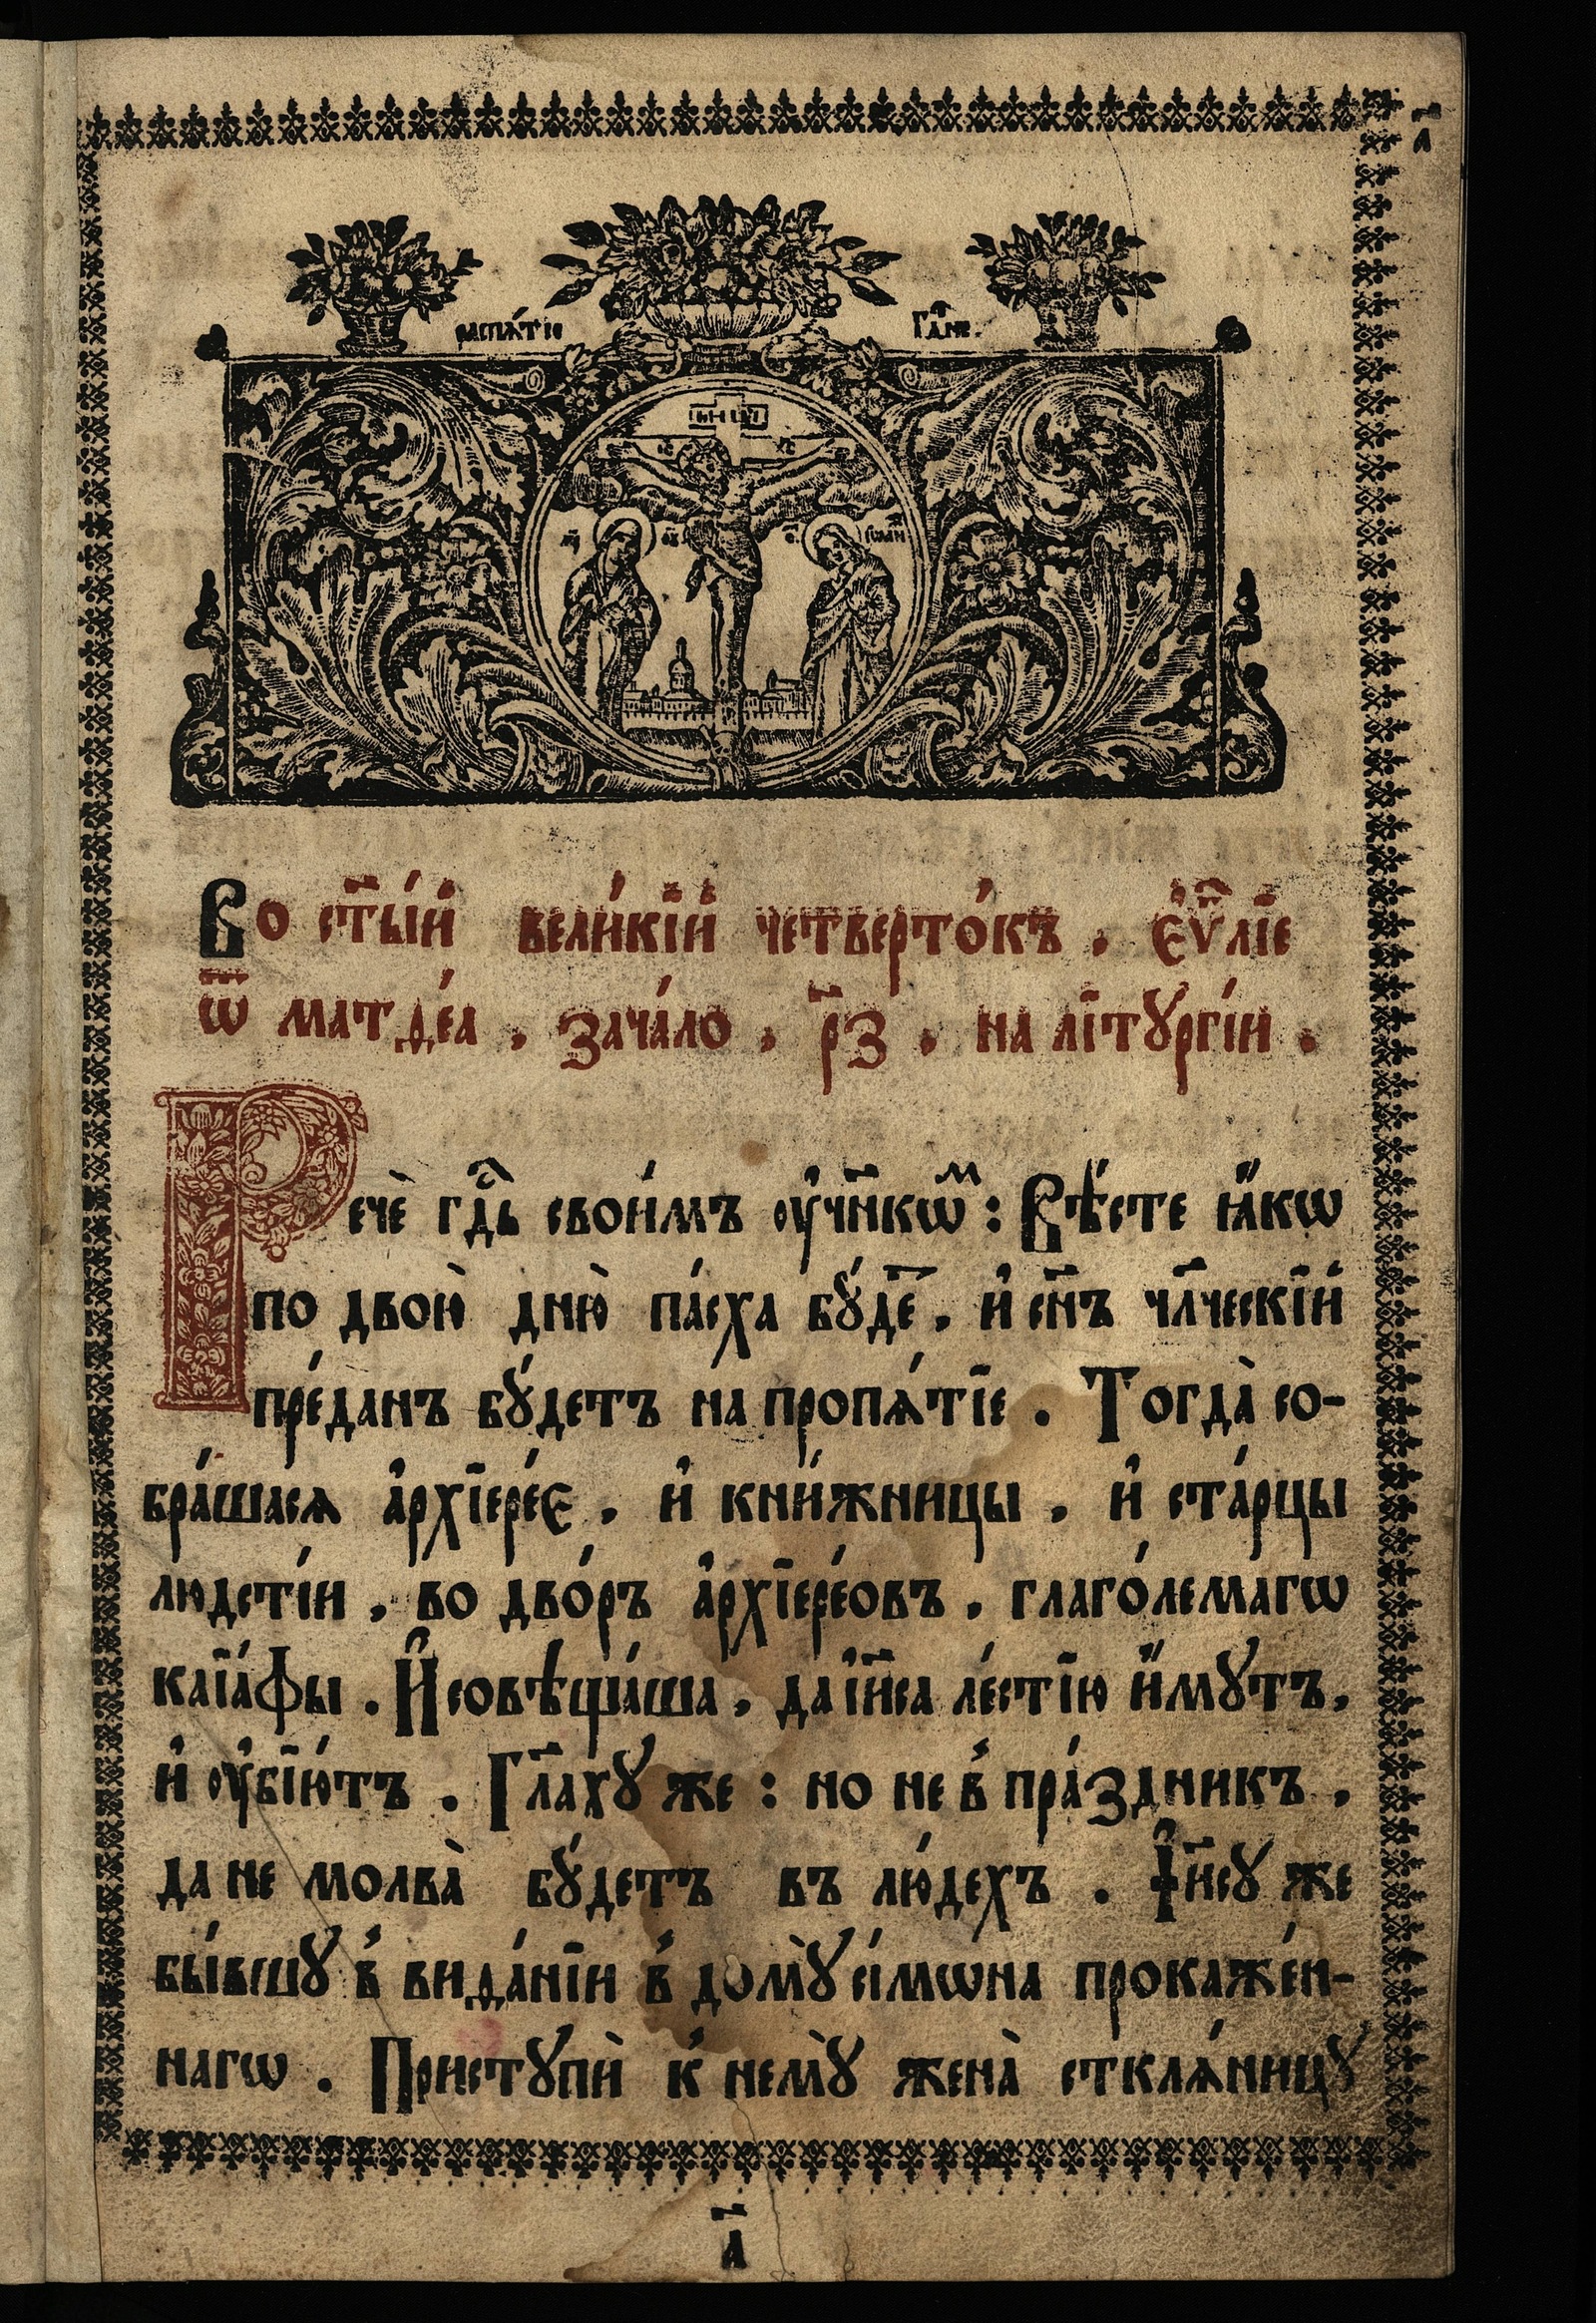 а҃
распѧ́тїе гд҇не.
ІНЦІ
іс хс
во ст҃ы́й вели́кїй четверто́къ , є҆ѵ҃лїе
ѿ матѳе́а , зача́ло , р҃з , на лїтꙋргі́и .
Речѐ гд҇ь свои̑мъ ᲂу҆ч҃нкѡм : Вѣ́сте ꙗ҆́кѡ
по двою̀ дню̀ па́сха бꙋ́де , и҆ сн҃ъ чл҃ческїй
пре́данъ бꙋ́детъ на пропѧ́тїе . Тогда̀ со-
бра́шасѧ а҆рхїере́є , и҆ кни́жницы , и҆ ста́рцы
людсті́и , во дво́ръ а҆рхїере́овъ , глаго́лемагѡ
каїа́фы . И҆ совѣща́ша , да і҆и҃са ле́стїю и҆́мꙋтъ,
и҆ ᲂу҆бїю́тъ . Гл҃ахꙋ же : но не в̾ пра́здникъ ,
да не молва̀ бꙋ́детъ въ лю́дехъ . І҆и҃сꙋ же
бы́вшꙋ в̾ виѳа́нїи в̾ домꙋ̀ сі́мѡна прокаже́н-
нагѡ . Пристꙋпѝ к̾ немꙋ̀ жена̀ сткл́ѧницꙋ
а҃